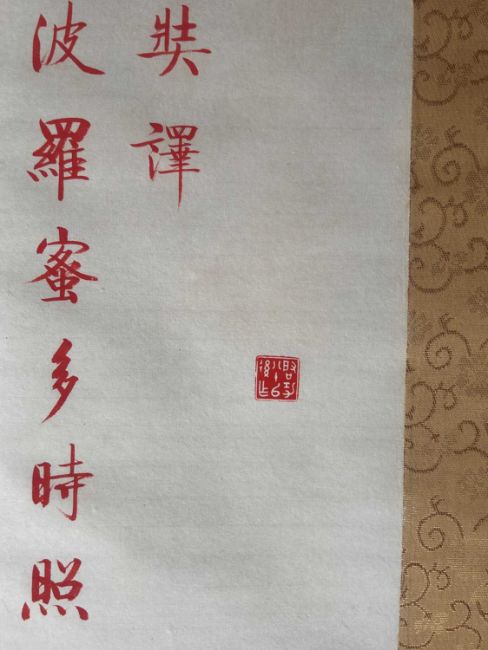 奘譯
波羅蜜多時照